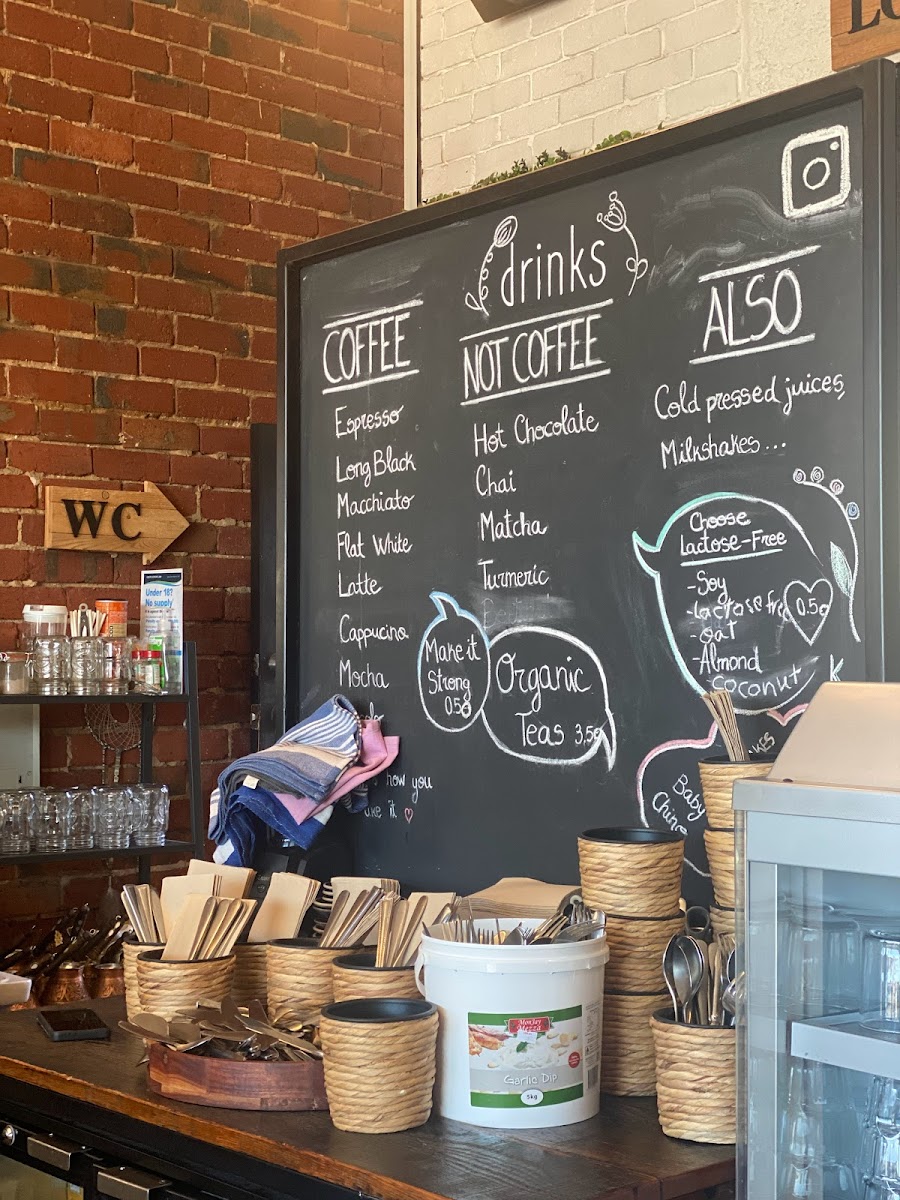 drinks
COFFEE
Espresso
Long Black
Macchiato
Flat White
Latte
Cappucino
Mocha
how you
it
NOT COFFEE
Hot Chocolate
Chai
Matcha
Turmeric
Make it
Strong
0.5c
Organic
Teas 3.5
ALSO
Cold pressed juices,
Milkshakes...
Choose
Lactose-Free
-Soy
-lactose free
-oat
-Almond
-coconut
0.5c
Baby
Chino
WC
Under 18?
No supply
Garlic Dip
5kg